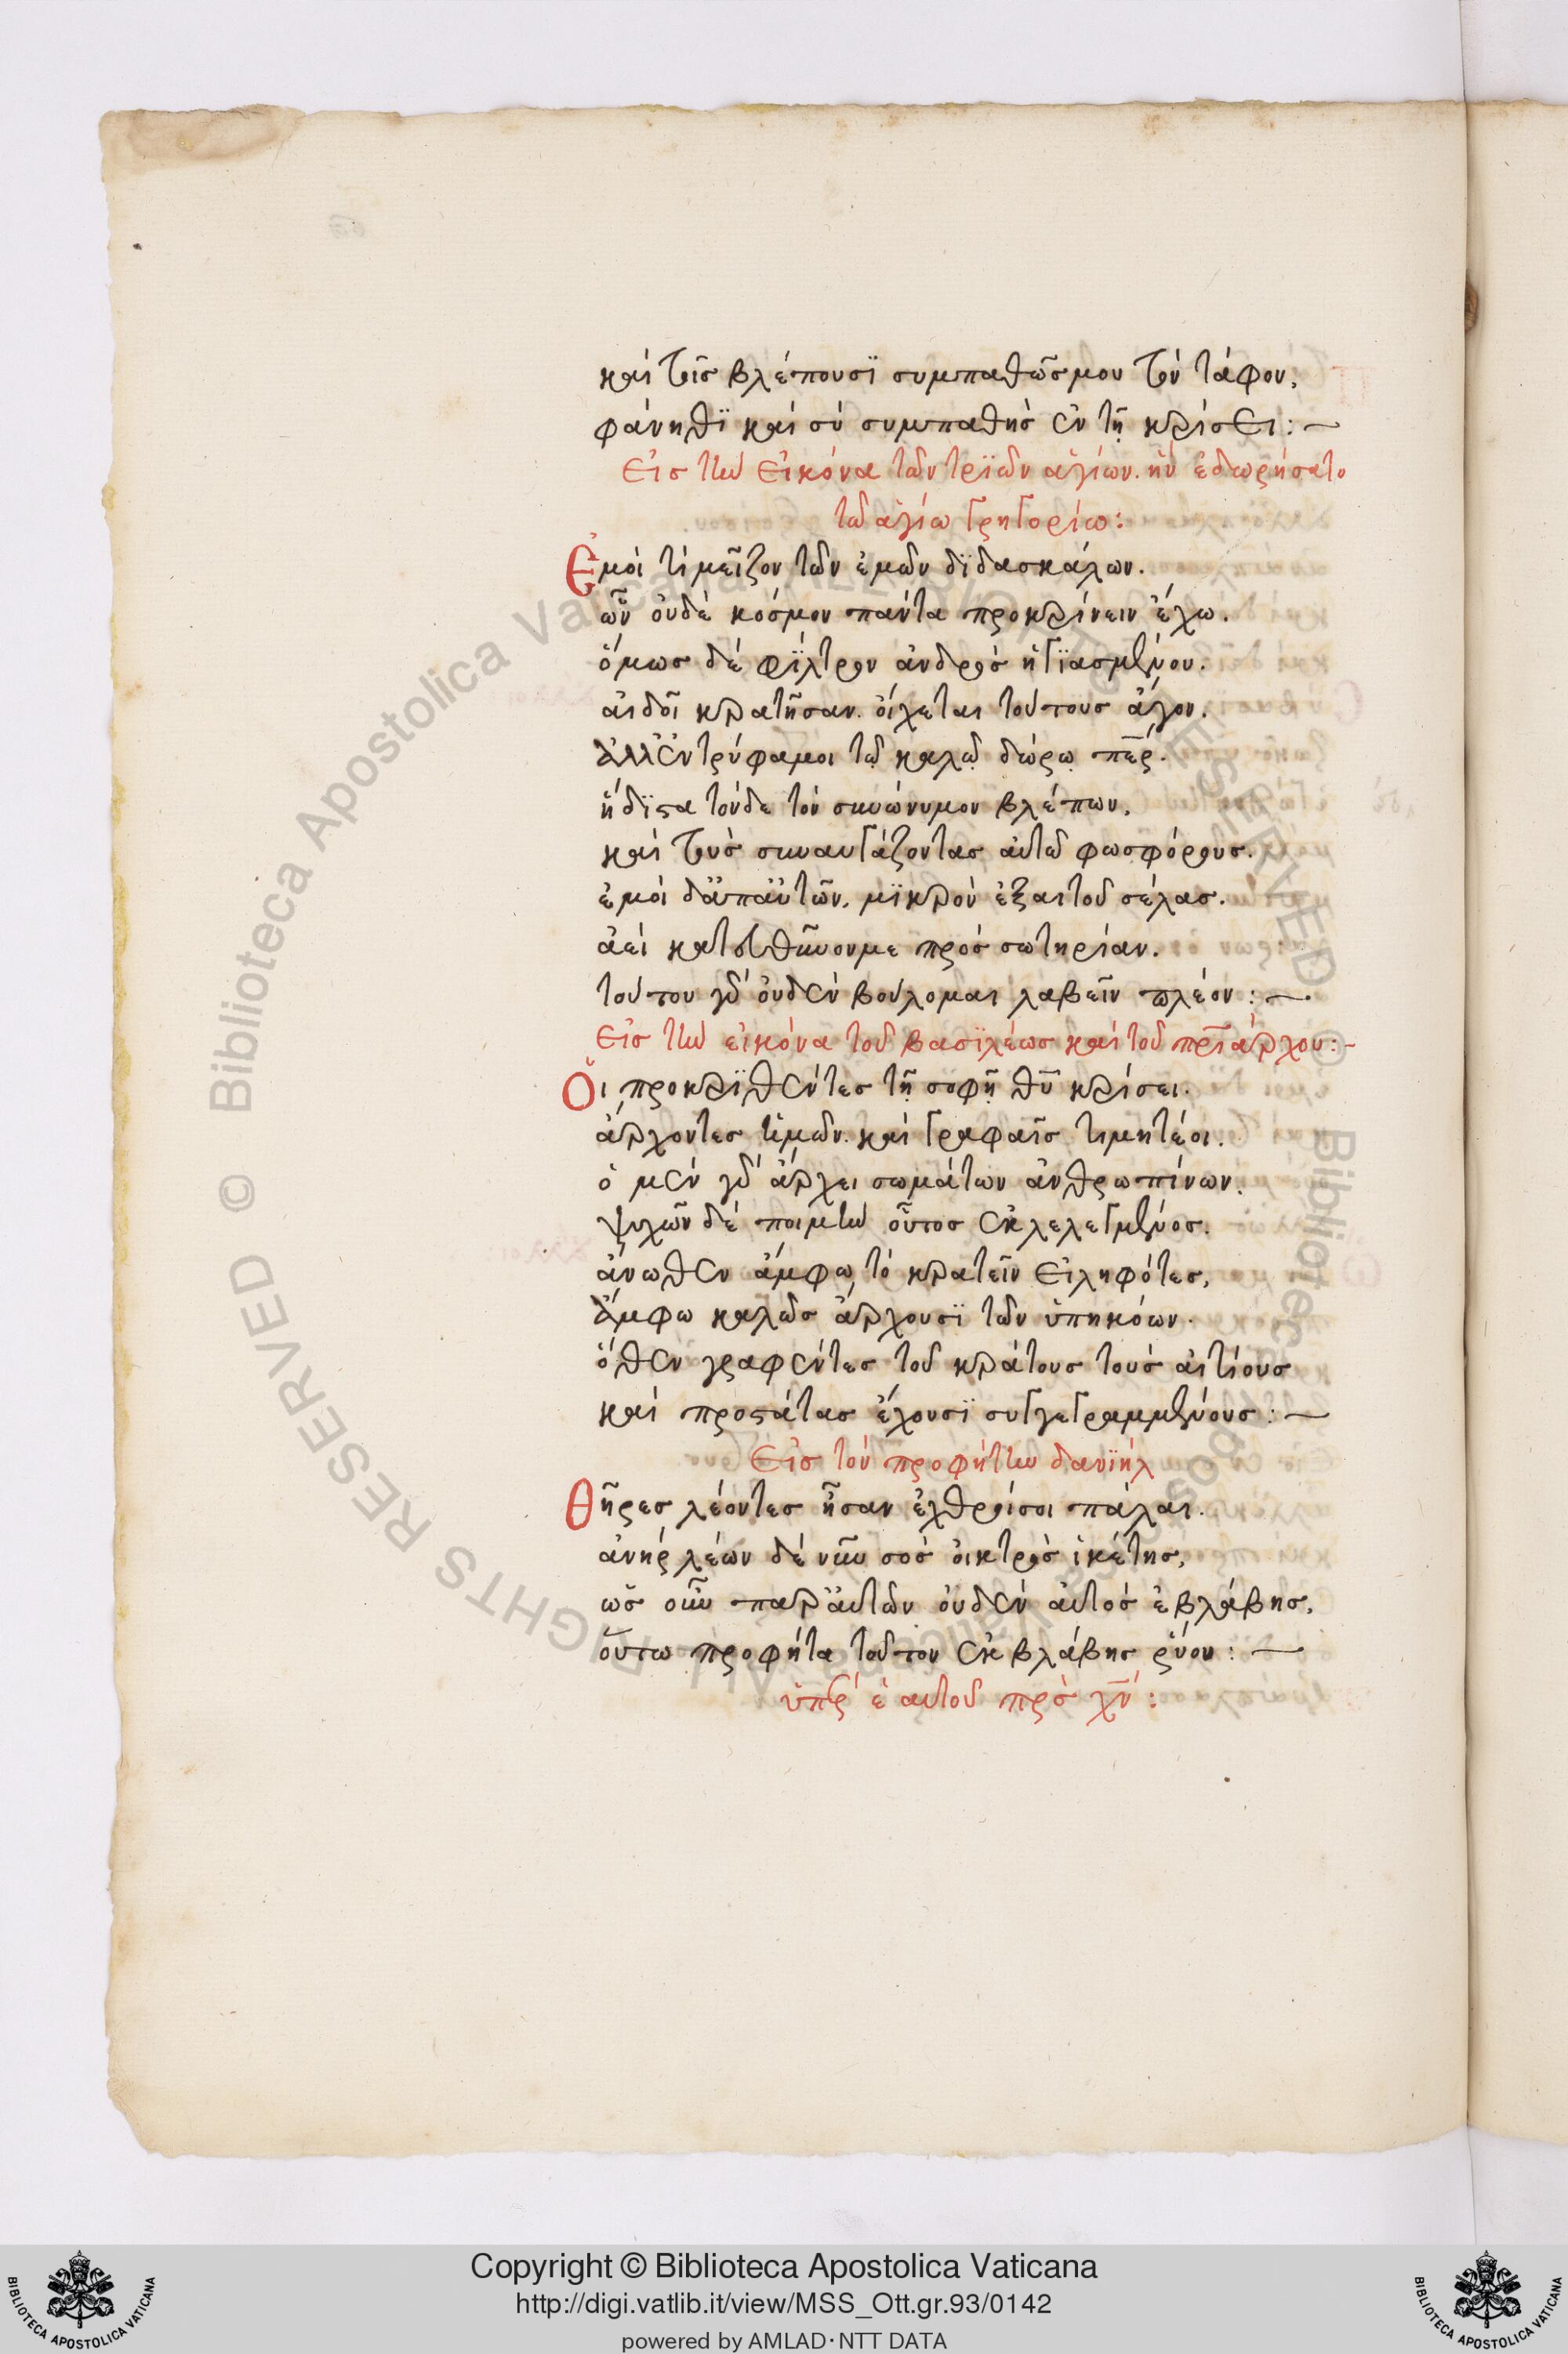 καὶ τοῖς βλέπουσϊ συμπαθῶς μου τὸν τάφον,
φάνηθϊ καὶ σὺ συμπαθὴς ἐν τῇ κρίσει :—
Εἰς τὴν εἰκόνα τῶν τρϊῶν ἁγίων. ἣν ἐδωρήσατο
τῶ ἁγίω Γρηγορίω :
Ἐμοὶ τί μεῖζον τῶν ἐμῶν δϊδασκάλων.
ὧν οὐδὲ κόσμον πάντα προκρίνειν ἔχω.
ὅμως δὲ φίλτρον ἀνδρὸς ἡγϊασμένου.
αἰδοῖ κρατῆσαν. οἴχεται τούτους ἄγον.
ἀλλ' ἐντρύφα μοι τῷ καλῷ δώρῳ π̅ερ.
ἥδϊστα τόνδε τὸν συνώνυμον βλέπων,
καὶ τοὺς συναυγάζοντας αὐτῶ φωσφόρους.
ἐμοὶ δ' ἀπ' αὐτῶν, μϊκρὸν ἐξαιτοῦ σέλας.
ἀεὶ κατευθῦνον με πρὸς σωτηρίαν.
τούτου γὰρ οὐδὲν βούλομαι λαβεῖν πλέον :—
Εἰς τὴν εἰκόνα τοῦ βασϊλέως καὶ τοῦ πρ̅ϊάρχου :-
Οἱ προκρϊθέντες τῇ σοφῇ θ̅υ κρίσει.
ἄρχοντες ἡμῶν. καὶ γραφαῖς τιμητέοι.
ὁ μὲν γὰρ ἄρχει σωμάτων ἀνθρωπίνων.
ψυχῶν δὲ ποιμὴν οὗτος ἐκλελεγμένος.
ἄνωθεν ἄμφω τὸ κρατεῖν εἰληφότες,
ἄμφω καλῶς ἄρχουσϊ τῶν ὑπηκόων.
ὅθεν γραφέντες τοῦ κράτους τοὺς αἰτίους
καὶ προστάτας ἔχουσϊ συγγεγραμμένους :—
Εἰς τὸν προφήτην δανϊὴλ
Θῆρες λέοντες ἦσαν ἐχθροί σοι πάλαι.
ἀνὴρ λέων δὲ νῦν σὸς οἰκτρὸς ἱκέτης,
ὡς οὖν παρ' αὐτῶν οὐδὲν αὐτὸς ἐβλάβης,
οὕτω προφῆτα τοῦτον ἐκ βλάβης ῥύου :—
ὑπὲρ ἑαυτοῦ πρὸς χ̅ν :
Copyright © Biblioteca Apostolica Vaticana
http://digi.vatlib.it/view/MSS_Ott.gr.93/0142
powered by AMLAD·NTT DATA
© Biblioteca Apostolica Vaticana ALL RIGHTS RESERVED
BIBLIOTECA APOSTOLICA VATICANA
BIBLIOTECA APOSTOLICA VATICANA